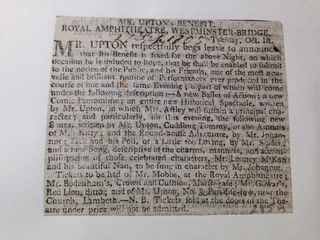 MR. UPTON's BENEFIT.
ROYAL AMPHITHEATRE, WESTMINSTER-BRIDGE.
Tuesday, Oct. 18.
MR. UPTON respectfully begs leave to announce
that his Benefit is fixed for the above Night, on which
occasion he is induced to hope, that he shall be enabled to submit
to the notice of the Public, and his Friends, one of the most nou-
velle and brilliant routine of Performances ever produced in the
course of one and the same Evening; part of which will come
under the following description—A new Ballet of Action; a new
Comic Pantomime; an entire new Historical Spectacle, written
by Mr. Upton, in which Mr. Astley will sustain a principal cha-
racter; and particularly, for this evening, the following new
Songs, written by Mr. Upton, Cudgling Tommy, or the Amours
of Miss Kitty; and the Round-house Adventure, by Mr. Johan-
not; Jack and his Poll, or a little too Loving, by Mr. Slader;
and a new Song, descriptive of the charms, manners, and accom-
plishments of those celebrated characters, Mr. Looney
and his beautiful Nan, to be sung in character by Mr. Johannot.
Tickets to be had of Mr. Mobbs, at the Royal Amphitheatre;
Mr. Bodenham's, Crown and Cushion, ditto; and Mr.
Red Lion, ditto; and of Mr. Upton, No. 3, near the
Church, Lambeth.—N. B. Tickets sold at the doors of the The-
atre under price will not be admitted.